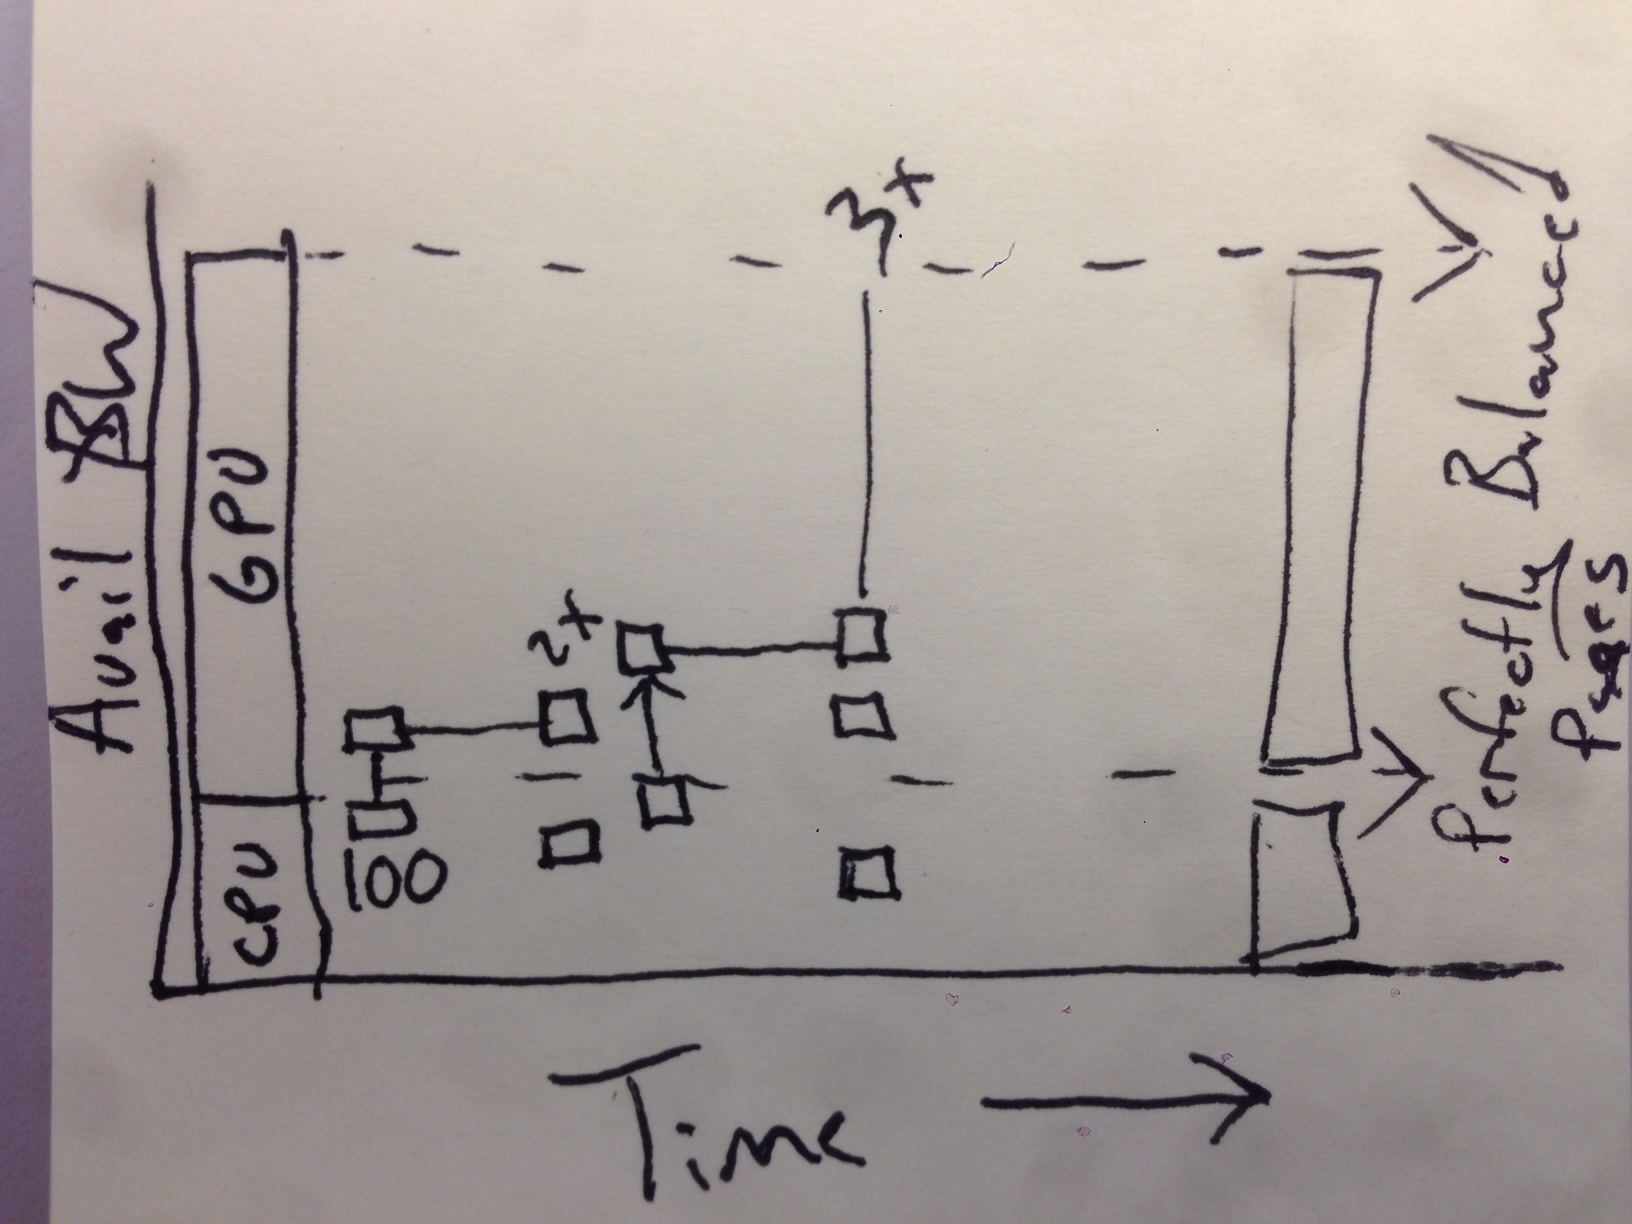 Avail BW
GPU
CPU
100
2x
3x
Perfectly Balanced
Pages
Time